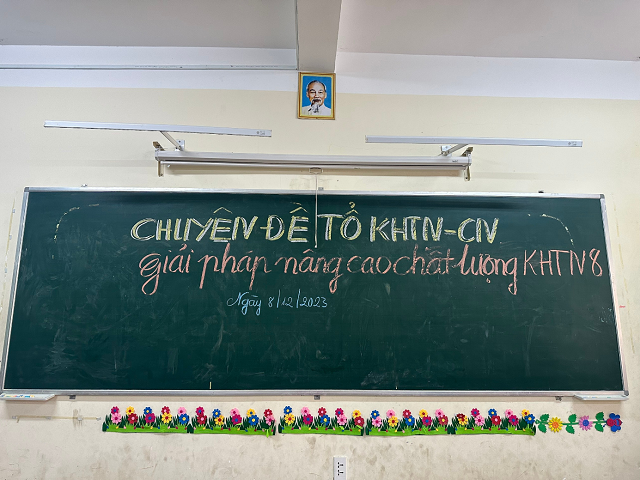 CHUYÊN ĐỀ TỔ KHTN-CN
giải pháp nâng cao chất lượng KHTN 8
Ngày 8/12/2023